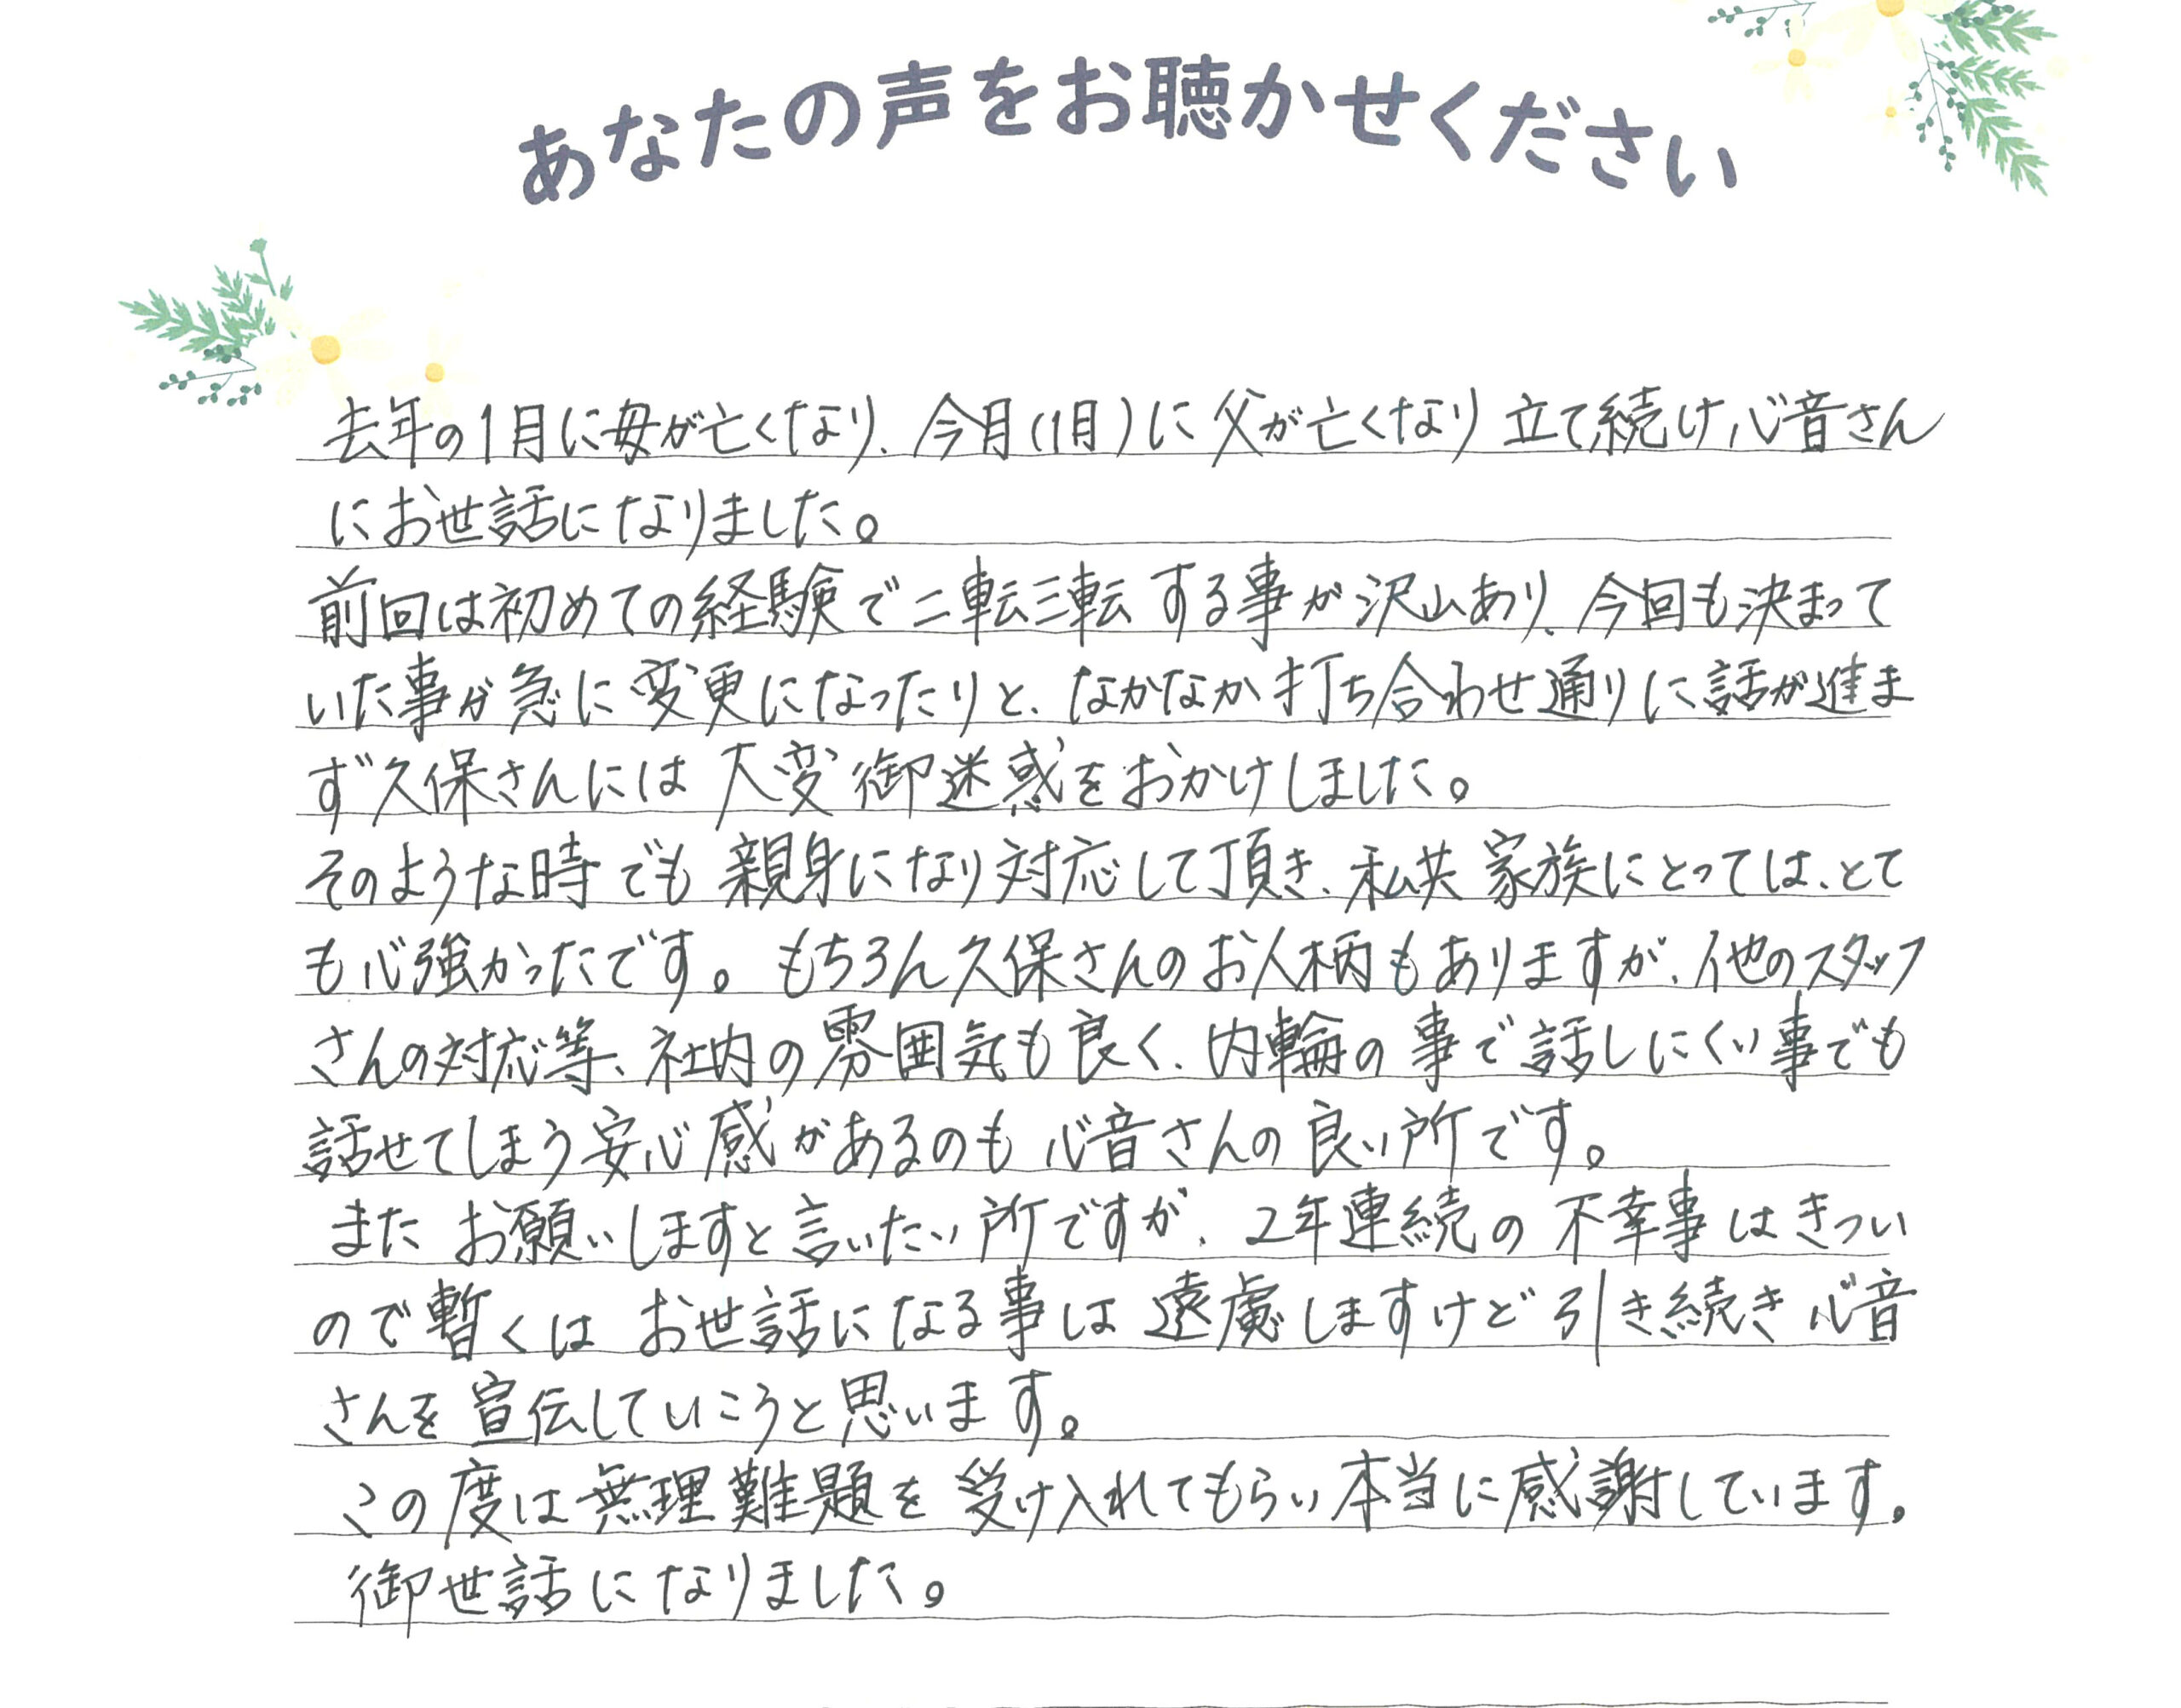 あなたの声をお聴かせください
去年の1月に母が亡くなり、今月(1月)に父が亡くなり立て続け心音さん
にお世話になりました。
前回は初めての経験で二転三転する事が沢山あり、今回も決まって
いた事が急に変更になったりと、なかなか打ち合わせ通りに話が進ま
ず久保さんには大変御迷惑をおかけしました。
そのような時でも親身になり対応して頂き、私共家族にとっては、とて
も心強かったです。もちろん久保さんのお人柄もありますが、他のスタッフ
さんの対応等、社内の雰囲気も良く、内輪の事で話しにくい事でも
話せてしまう安心感があるのも心音さんの良い所です。
またお願いしますと言いたい所ですが、2年連続の不幸事はきつい
ので暫くはお世話になる事は遠慮しますけど引き続き心音
さんを宣伝していこうと思います。
この度は無理難題を受け入れてもらい本当に感謝しています。
御世話になりました。